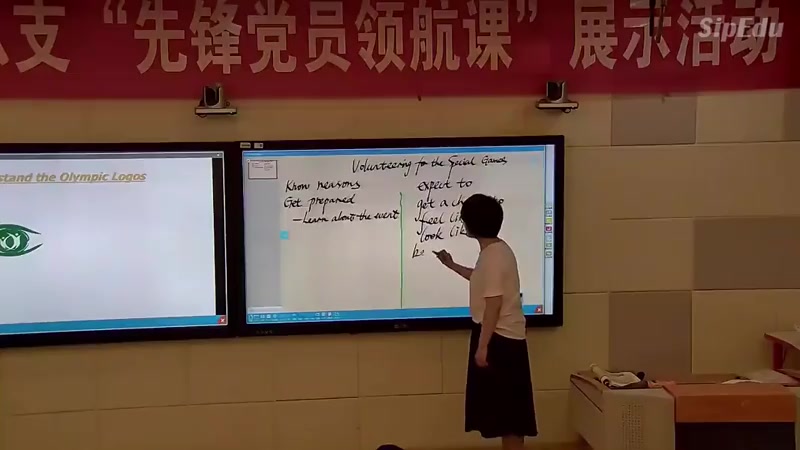 支“先锋党员领航课”展示活动
SipEdu
stand the Olympic Logos
Volunteering for the Special Games
Know reasons
Get prepared
—Learn about the event
expect to
get a ch to
feel li
look lik
be